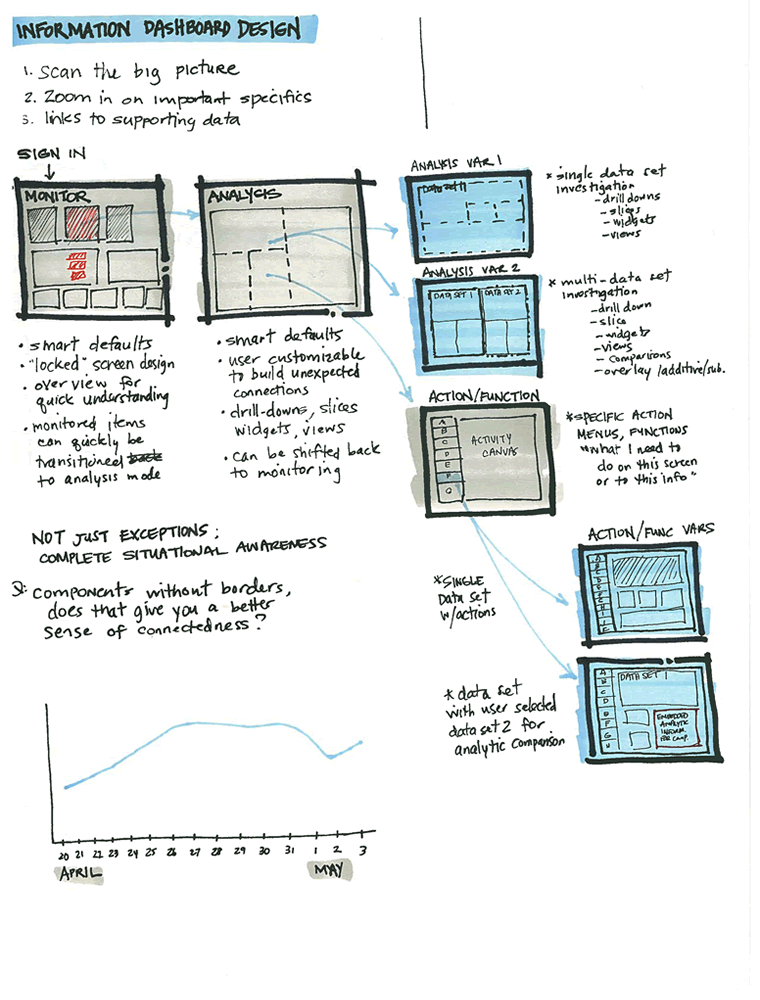 INFORMATION DASHBOARD DESIGN
1. scan the big picture
2. zoom in on important specifics
3. links to supporting data
SIGN IN
MONITOR
• smart defaults
• "locked" screen design
• overview for
quick understanding
• monitored items
can quickly be
transitioned back
to analysis mode
ANALYSIS
• smart defaults
• user customizable
to build unexpected
connections
• drill-downs, slices
widgets, views
• can be shifted back
to monitoring
ANALYSIS VAR 1
DATA SET 1
* single data set
investigation
- drill downs
- slices
- widgets
- views
ANALYSIS VAR 2
DATA SET 1
DATA SET 2
* multi-data set
investigation
- drill down
- slice
- widgets
- views
- comparisons
- overlay /additive/sub.
ACTION/FUNCTION
A
B
C
D
E
F
G
ACTIVITY
CANVAS
* SPECIFIC ACTION
MENUS, FUNCTIONS
"what I need to
do on this screen
or to this info"
NOT JUST EXCEPTIONS;
COMPLETE SITUATIONAL AWARENESS
components without borders,
does that give you a better
sense of connectedness?
ACTION/FUNC VARS
* SINGLE
DATA SET
w/actions
A
B
C
D
E
F
G
H
I
* data set
with user selected
data set 2 for
analytic comparison
A
B
C
D
E
F
G
H
DATA SET 1
EMBEDDED
ANALYTIC
INFORM.
FOR COMP.
20 21 22 23 24 25 26 27 28 29 30 31 1 2 3
APRIL MAY